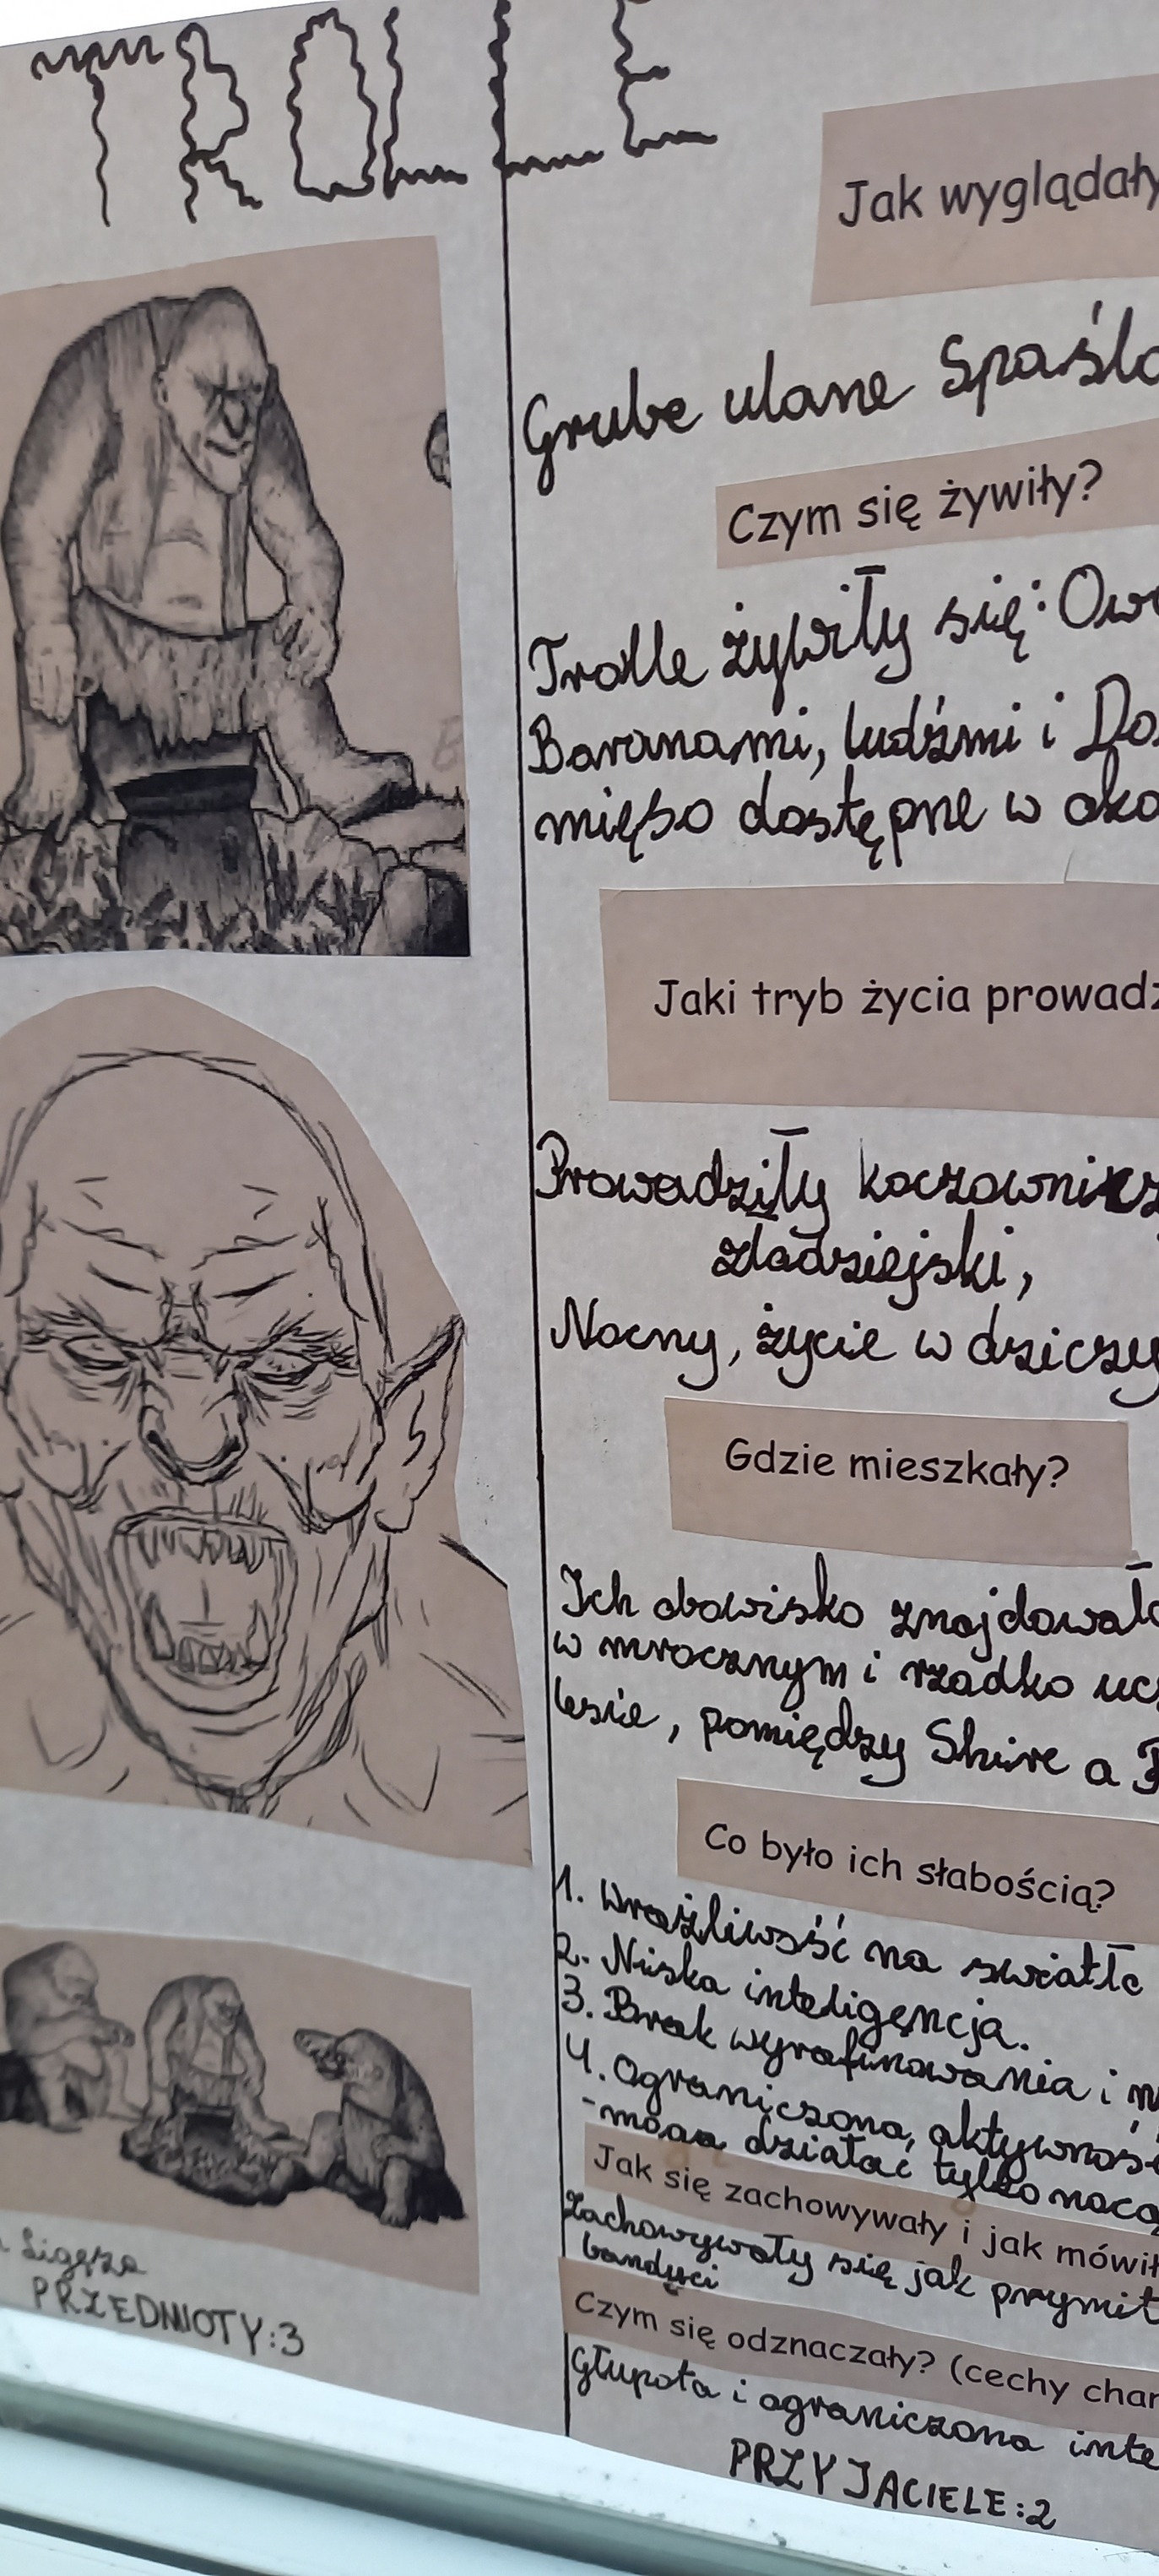 TROLLE
Jak wyglądały
Grube ulane Spaślo
Czym się żywiły?
Trolle żywiły się: Ow
Baranami, ludźmi i Do
mięso dostępne w oko
Jaki tryb życia prowadz
Prowadziły koczownicz
złodziejski,
Nocny, życie w dziczy
Gdzie mieszkały?
Ich obowisko znajdowało
w mrocznym i rzadko ucz
lesie, pomiędzy Shire a
Co było ich słabością?
1. Wrażliwość na światło
2. Niska inteligencja.
3. Brak wyrafinowania i
4. Ograniczona, aktywnoś
-mogą działać tylko nocą
Jak się zachowywały i jak mówił
Zachowywały się jak prymit
bandyci
Czym się odznaczały? (cechy char
Głupota i ograniczona inte
Sigęza
PRZEDMIOTY:3
PRZYJACIELE:2